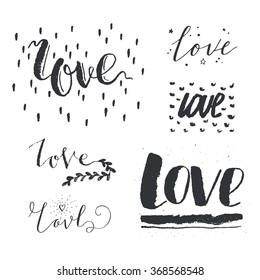 love
love
love
love
love
LOVE
shutterstock.com · 368568548